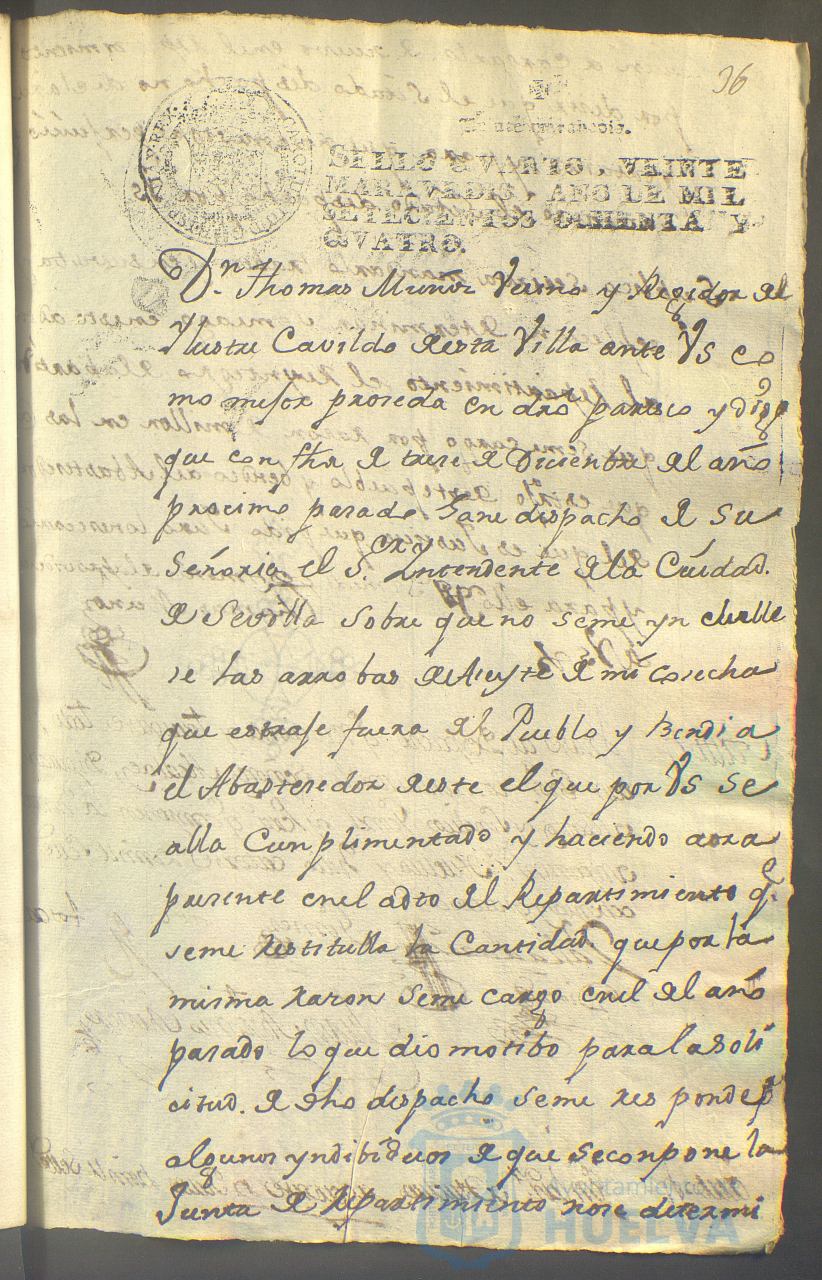 36
Veinte maravedis.
SELLO QVARTO, VEINTE
MARAVEDIS, AÑO DE MIL
SETECIENTOS OCHENTA Y
QVATRO.
Dn. Thomas Muñiz Vecino y Regidor del
Ylustre Cavildo de esta Villa ante VS co
mo mejor proseda en dro paresco y digo
que con fha de trese de Diciembre del año
procimo pasado Gane dispacho de su
Señoria el Sr. Yntendente de la Ciudad.
de Sevilla sobre que no seme yn clulle
se las arrobas de Aseyte de mi Cosecha
que estraje fuera del Pueblo y Bendi a
el Abastesedor de este el que por VS se
alla Cunplimentado y haciendo aora
presente en el acto del Repartimiento q.
seme restitulla la Cantidad. que por la
misma raron seme cargo en el del año
pasado lo que dio motibo para la soli
citud. de dho dispacho seme res ponde pr
algunos yndibiduos de que se conpone la
Junta de Repartimiento no se determi
AYUNTAMIENTO DE
HUELVA